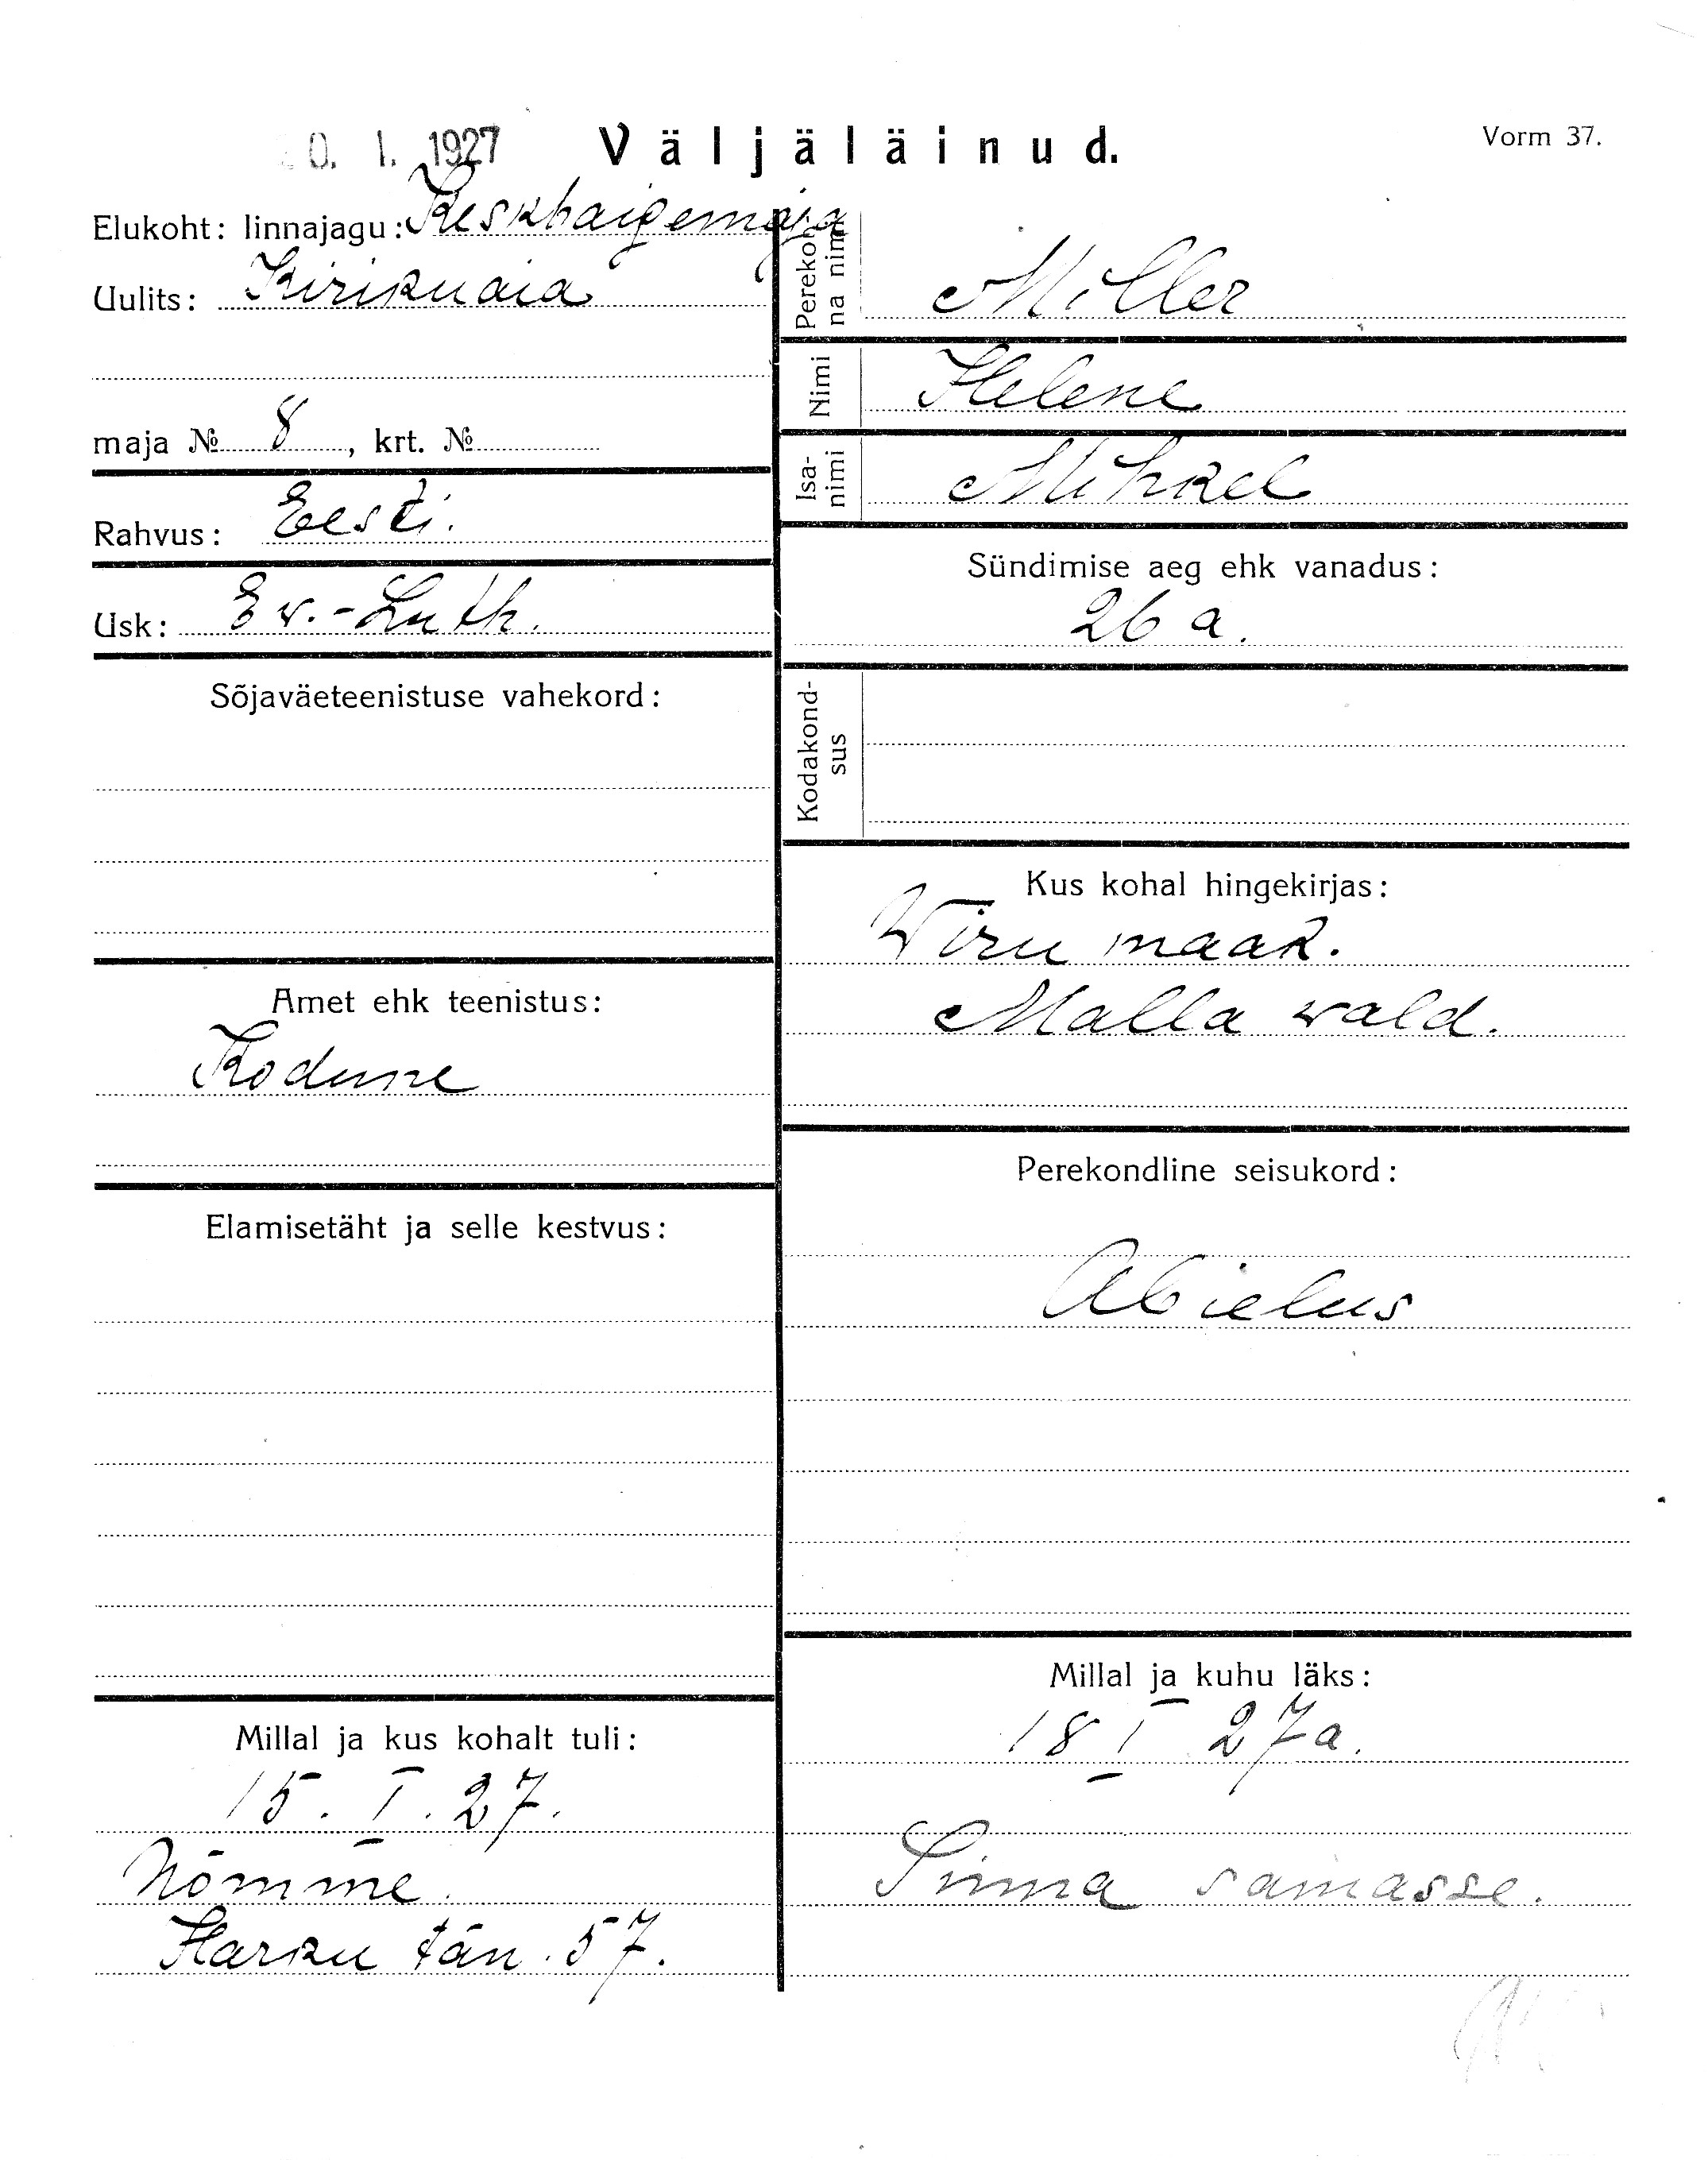 0. I. 1927 Väljäläinud. Vorm 37.
Elukoht: linnajagu: Keskhaigemaja
Uulits: Kirikuaia
maja № 8, krt. №
Rahvus: Eesti.
Usk: Ev.-Luth.
Sõjaväeteenistuse vahekord:
Amet ehk teenistus:
Kodune
Elamisetäht ja selle kestvus:
Millal ja kus kohalt tuli:
15. I. 27.
Nõmme.
Harku tän. 57.
Perekon-
na nimi
Miller
Nimi
Helene
Isa-
nimi
Mihkel
Sündimise aeg ehk vanadus:
26 a.
Kodakond-
sus
Kus kohal hingekirjas:
Wiru maak.
Malla wald.
Perekondline seisukord:
Abielus
Millal ja kuhu läks:
18 I 27 a.
Sinna samasse.